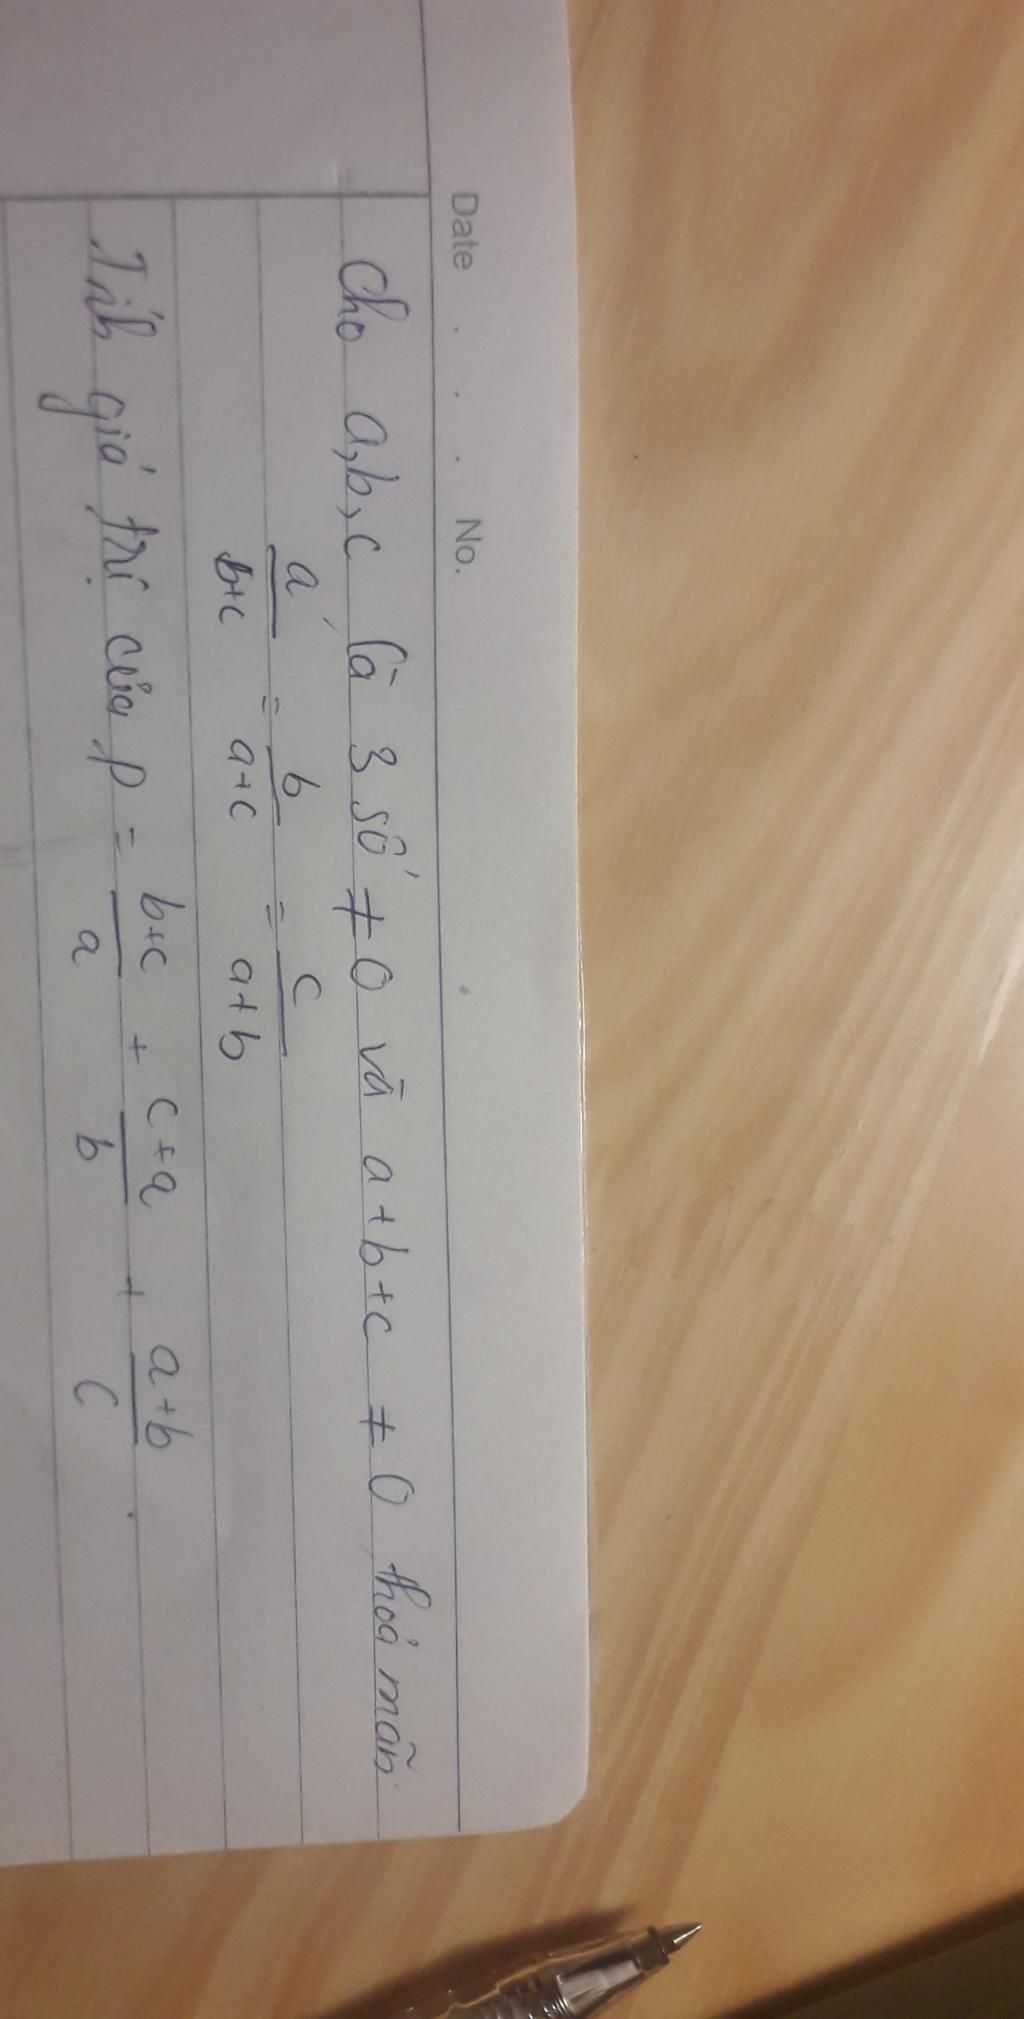 Date . . . No.
Cho a,b,c là 3 số ≠ 0 và a+b+c ≠ 0 thoả mãn
a/(b+c) = b/(a+c) = c/(a+b)
Tính giá trị của P = (b+c)/a + (c+a)/b + (a+b)/c .